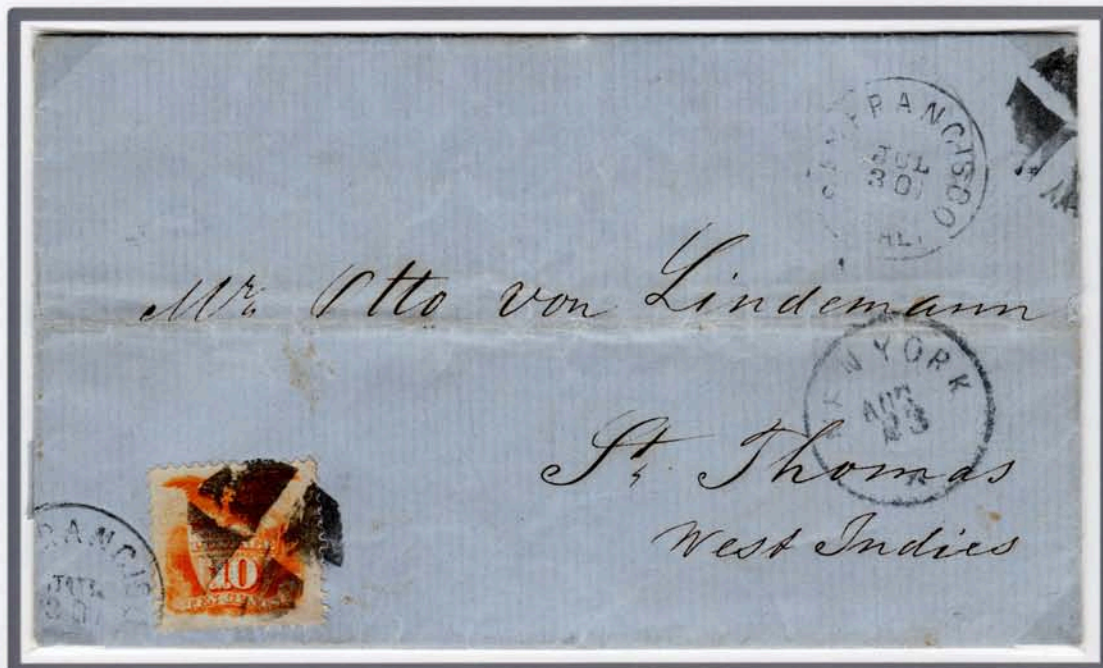 SAN FRANCISCO
JUL
30
CAL.
Mr. Otto von Lindemann
NEW YORK
AUG
23
St. Thomas
West Indies
FRANCISC
30
10